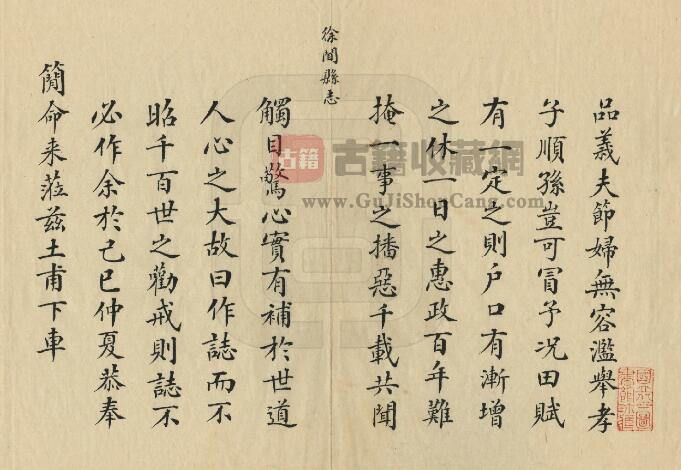 品義夫節婦無容濫舉孝
子順孫豈可冒予况田賦
有一定之則户口有漸增
之休一日之惠政百年難
掩一事之播惡千載共聞
徐聞縣志
觸目驚心實有補於世道
人心之大故曰作誌而不
昭千百世之勸戒則誌不
必作余於己巳仲夏恭奉
簡命来蒞兹土甫下車
古籍
古籍收藏網
www.GuJiShouCang.com